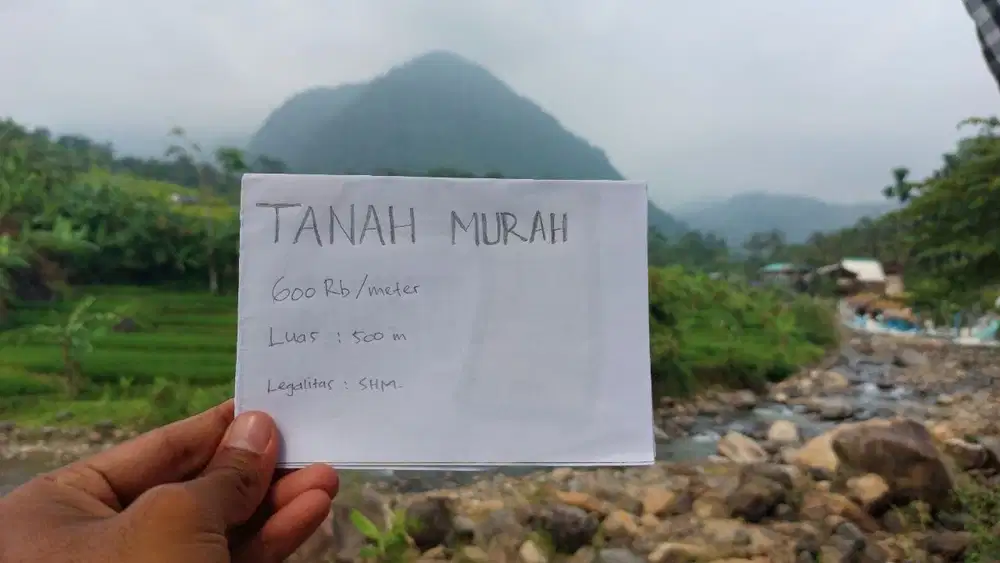 TANAH MURAH
600 Rb/meter
Luas : 500 m
Legalitas : SHM.